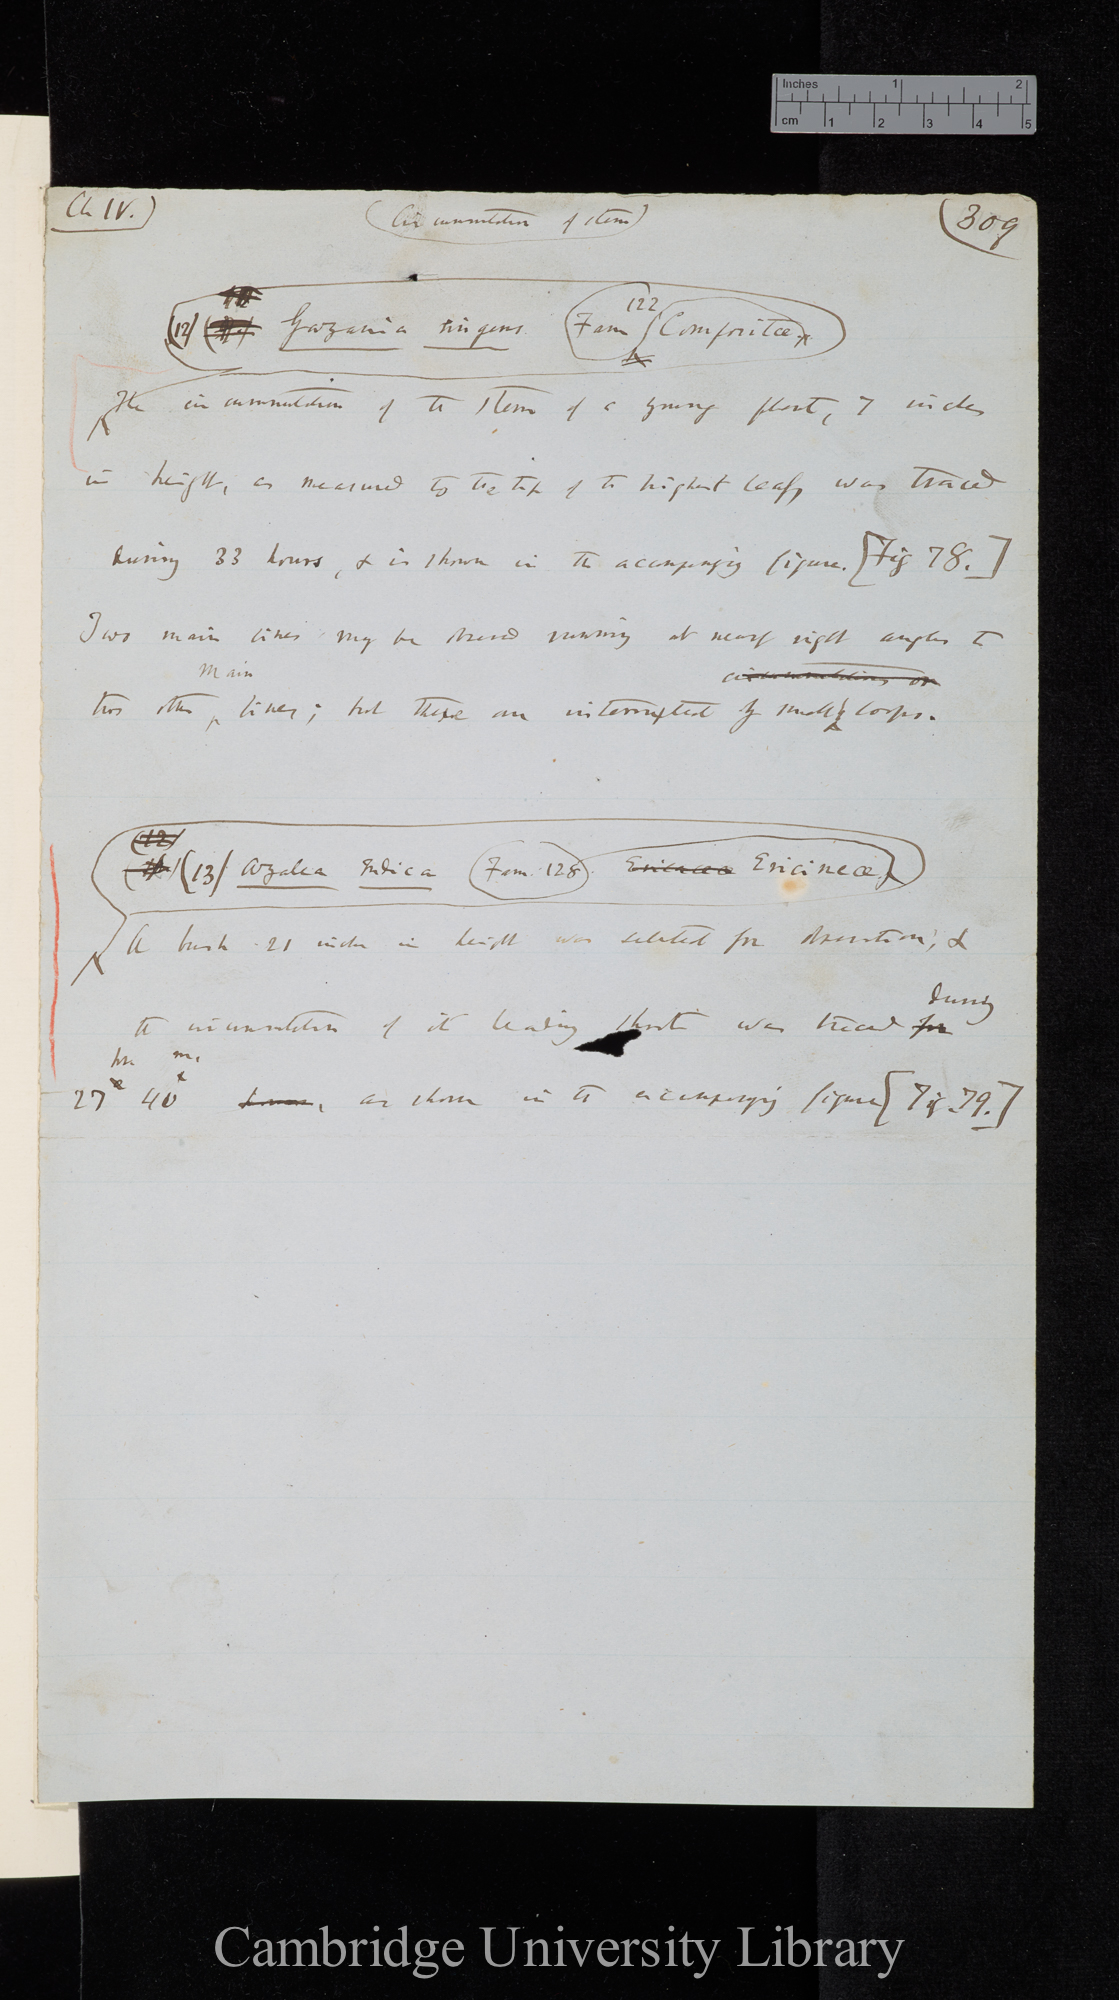 Inches 1 2
cm 1 2 3 4 5
Ch IV.) (Circumnutation of stems) (309
(12) Gazania ringens. Fam 122 (Compositæ)
The circumnutation of the stem of a young plant, 7 inches
in height, as measured to the tip of the highest leaf, was traced
during 33 hours, & is shown in the accompanying figure. [Fig 78.]
Two main lines may be observed running at nearly right angles to
main circumnutations or
two other lines; but these are interrupted by small loops.
(12)
(13) Azalea Indica (Fam. 128) Ericacea Ericineæ
A bush 21 inches in height was selected for observation, &
during
the circumnutation of its leading shoot was traced for
hr. m.
27 40 hours, as shown in the accompanying figure [Fig. 79.]
Cambridge University Library